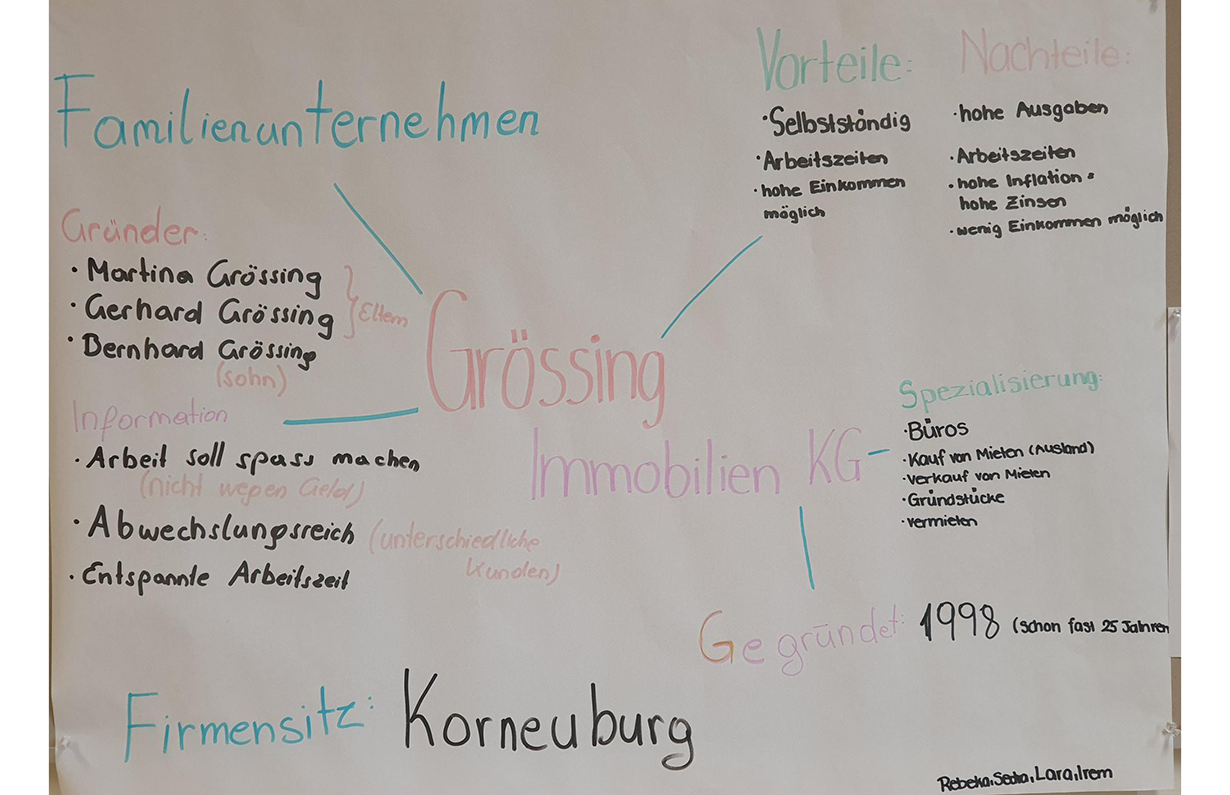 Familienunternehmen
Gründer:
· Martina Grössing
· Gerhard Grössing
} Eltern
· Bernhard Grössing
(sohn)
Information
· Arbeit soll spass machen
(nicht wegen Geld)
· Abwechslungsreich (unterschiedliche
kunden)
· Entspannte Arbeitszeit
Grössing
Immobilien KG
Vorteile:
· Selbstständig
· Arbeitszeiten
· hohe Einkommen
möglich
Nachteile:
· hohe Ausgaben
· Arbeitszeiten
· hohe Inflation +
hohe Zinsen
· wenig Einkommen möglich
Spezialisierung:
· Büros
· Kauf von Mieten (Ausland)
· Verkauf von Mieten
· Gründstücke
· vermieten
Gegründet: 1998 (schon fast 25 Jahren
Firmensitz: Korneuburg
Rebeka, Lara, Irem